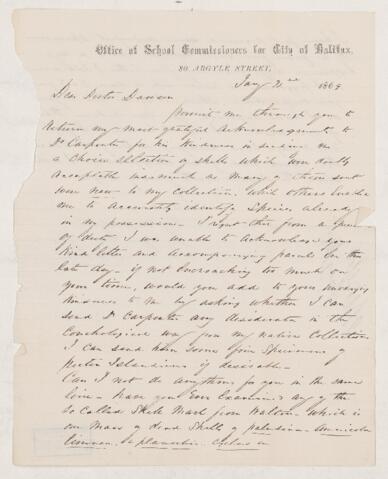 Office of School Commissioners for City of Halifax,
80 ARGYLE STREET,
Jany 2nd 1869
Dear Doctor Dawson
permit me through you to
return my most grateful acknowledgments to
Dr Carpenter for his kindness in sending me
a choice selection of shells which were doubly
acceptable inasmuch as many of those sent
were new to my collection, while others enable
me to accurately identify species already
in my possession. I regret that from a
of duty I was unable to acknowledge your
kind letter and accompanying parcel
late day. if not encroaching too much on
your time, would you add to your
kindness to me by asking whether I can
send Dr Carpenter any desiderata in the
Conchological way from my native collections
I can send him some fine specimens of
pecten Islandicus if desirable.
Can I not do anything for you in the same
line. have you ever examined any of the
so called Shell Marl from which is
one mass of dead shells of paludina
Limnea, planorbis Cyclas